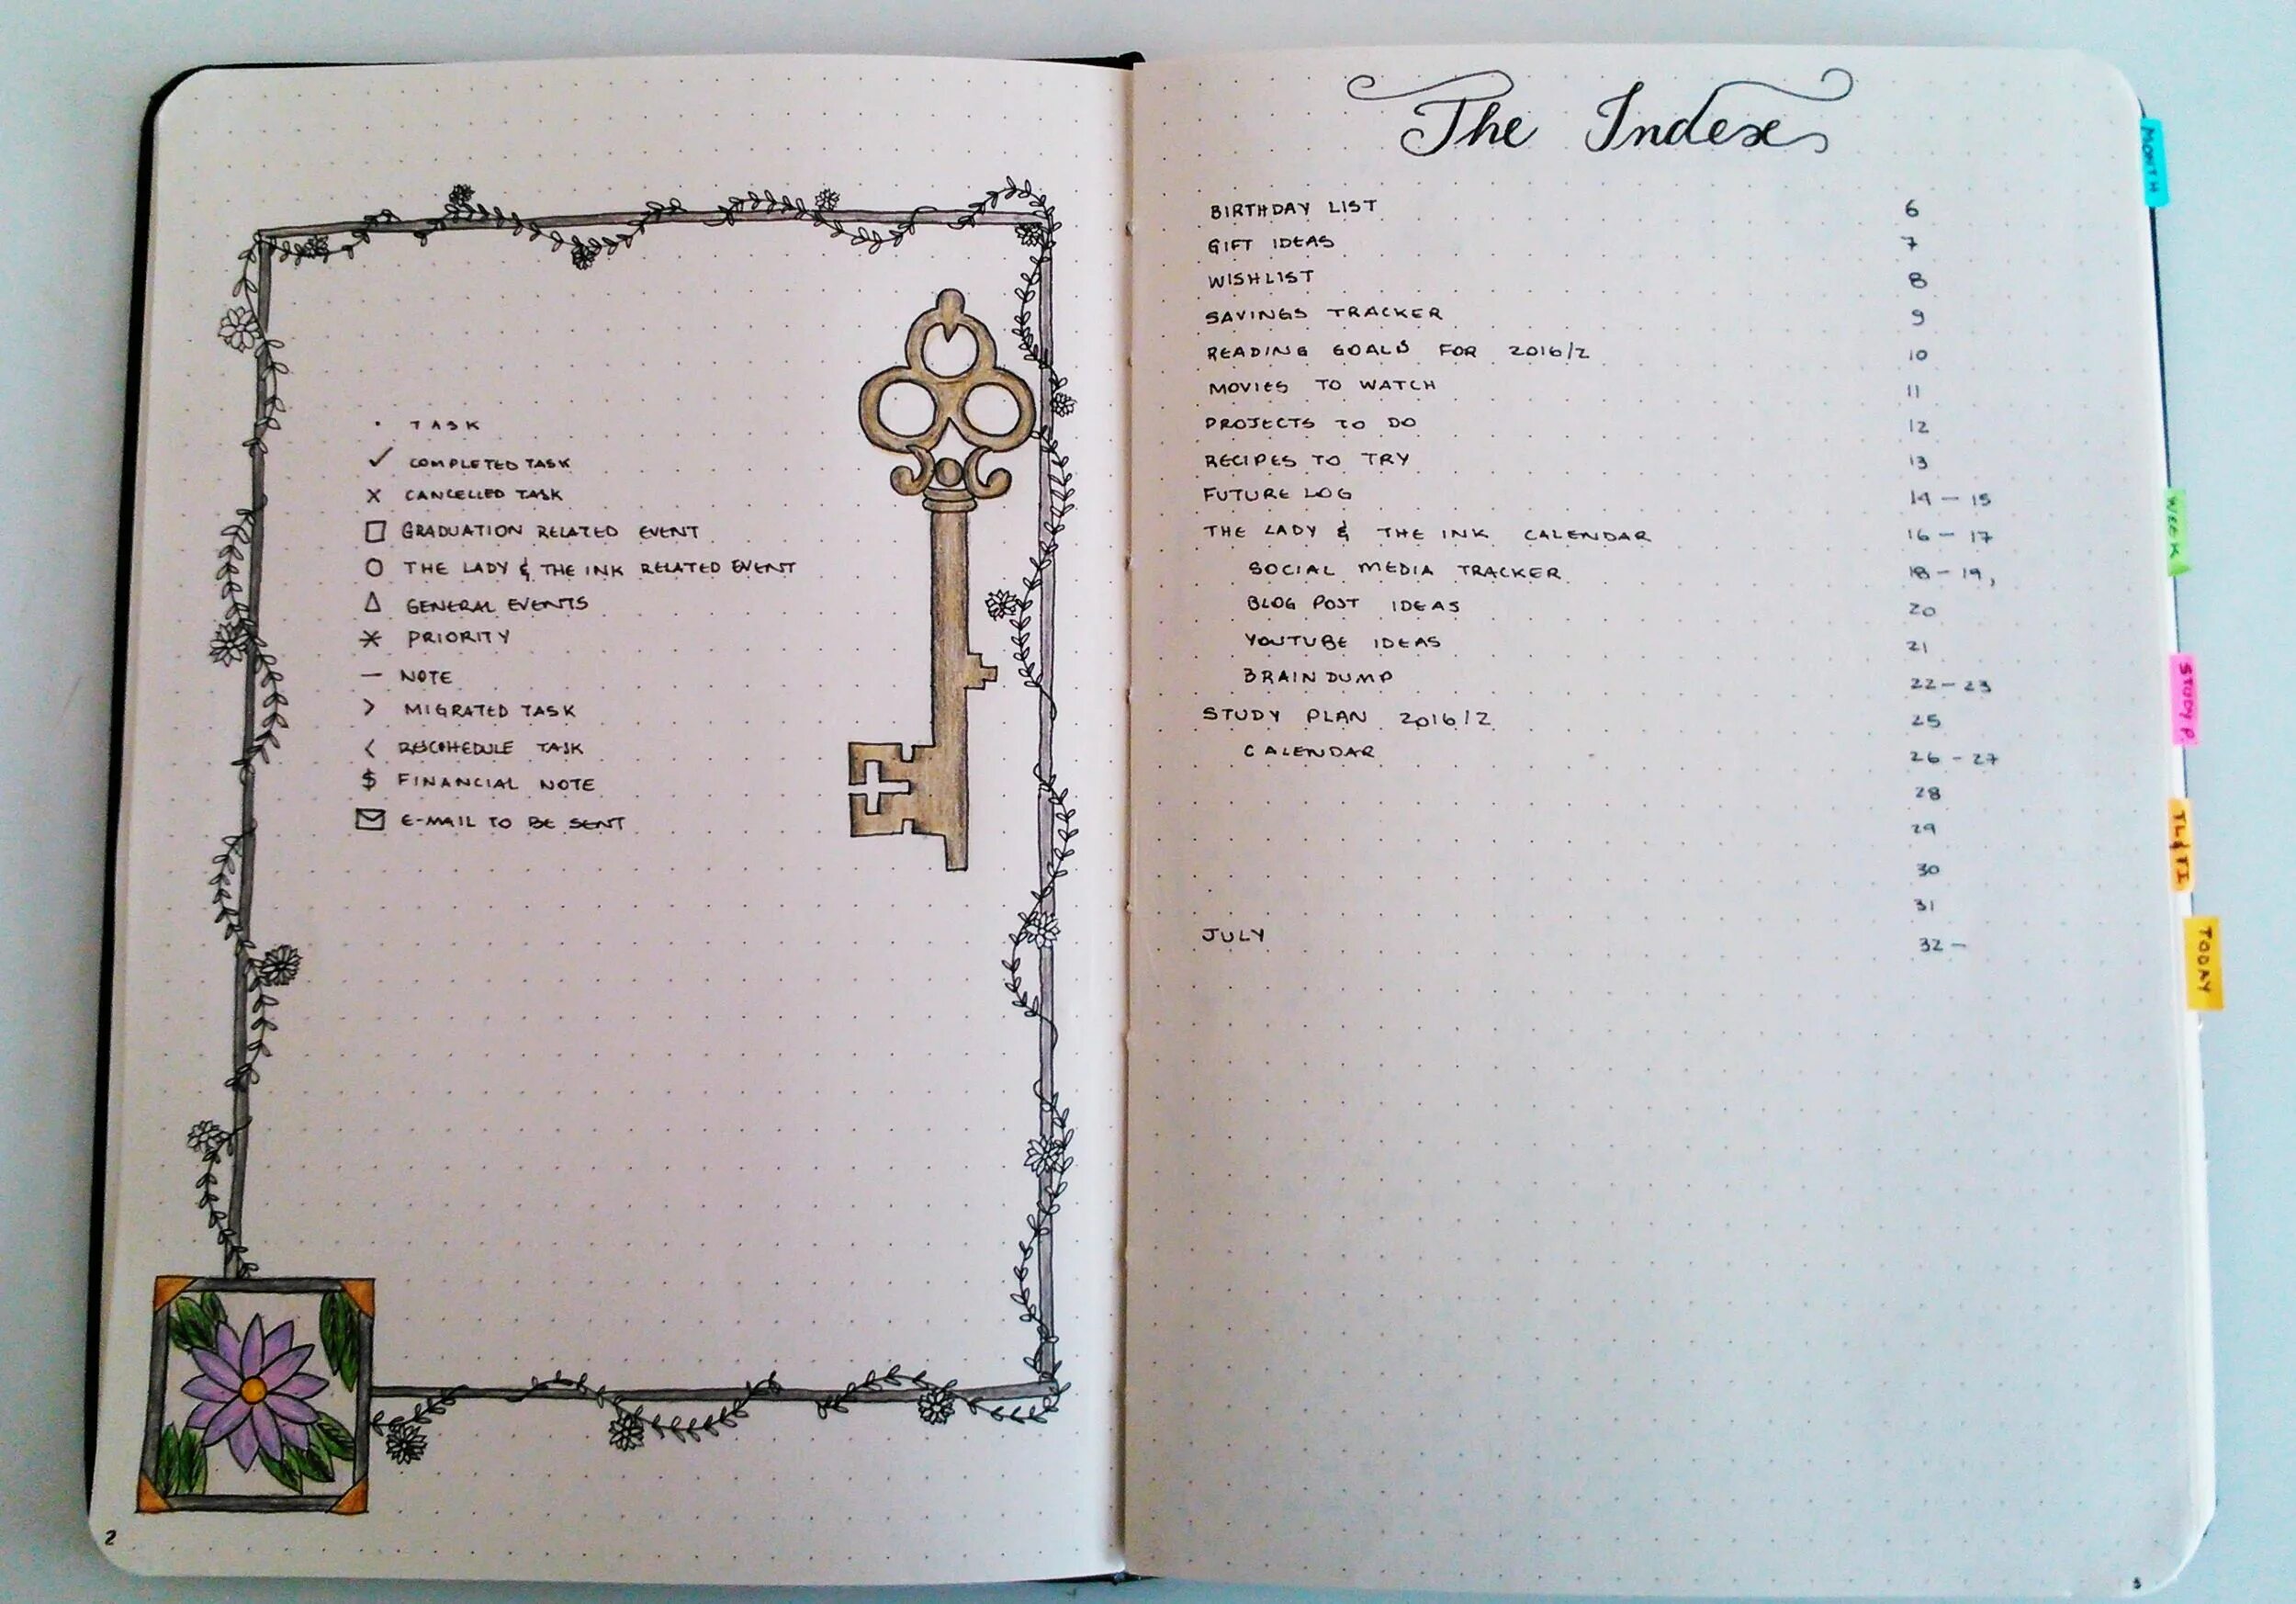 · TASK
✓ COMPLETED TASK
X CANCELLED TASK
□ GRADUATION RELATED EVENT
○ THE LADY & THE INK RELATED EVENT
△ GENERAL EVENTS
* PRIORITY
— NOTE
> MIGRATED TASK
< RESCHEDULE TASK
$ FINANCIAL NOTE
✉ E-MAIL TO BE SENT
2
The Index
BIRTHDAY LIST 6
GIFT IDEAS 7
WISHLIST 8
SAVINGS TRACKER 9
READING GOALS FOR 2016/2 10
MOVIES TO WATCH 11
PROJECTS TO DO 12
RECIPES TO TRY 13
FUTURE LOG 14 – 15
THE LADY & THE INK CALENDAR 16 – 17
SOCIAL MEDIA TRACKER 18 – 19,
BLOG POST IDEAS 20
YOUTUBE IDEAS 21
BRAIN DUMP 22 – 23
STUDY PLAN 2016/2 25
CALENDAR 26 – 27
28
29
30
31
JULY 32 –
3
MONTH
WEEK
STUDY P.
TL&TI
TODAY